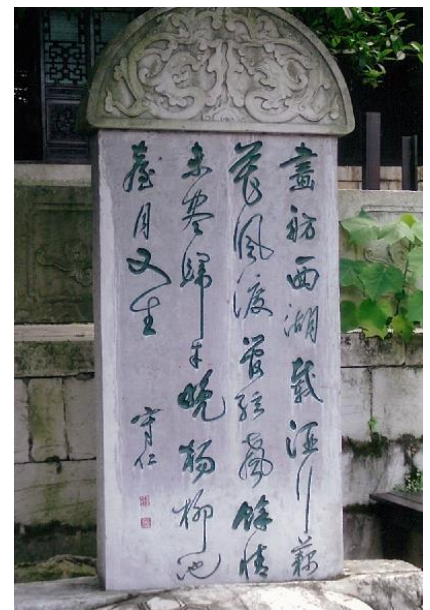 畫舫西湖載酒行藕
花風渡管絃聲餘情
未盡歸來晚楊柳池
臺月又生
守仁